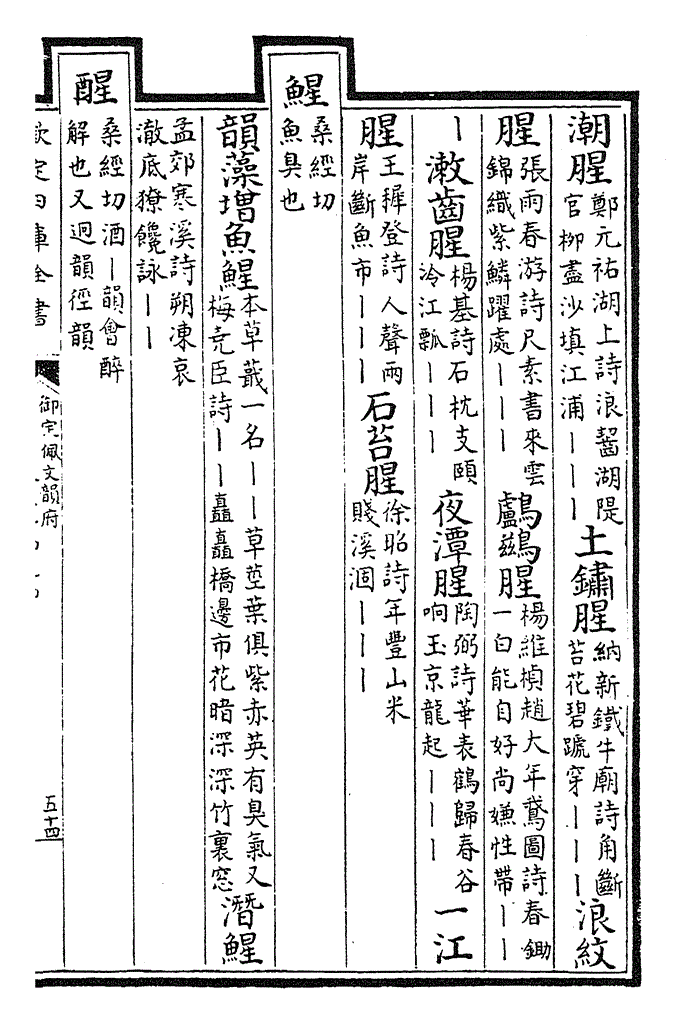 潮腥鄭元祐湖上詩浪齧湖隄官柳盡沙填江浦｜｜｜土鏽腥納新鐵牛廟詩角斷苔花碧蹏穿｜｜｜浪紋
腥張雨春游詩尺素書來雲錦織紫鱗躍處｜｜｜鸕鷀腥楊維楨趙大年鵞圖詩春鋤一白能自好尚嫌性帶｜｜
｜漱齒腥楊基詩石枕支頤冷江瓢｜｜｜夜潭腥陶弼詩華表鶴歸春谷响玉京龍起｜｜｜一江
腥王穉登詩人聲兩岸斷魚市｜｜｜石苔腥徐昭詩年豐山米賤溪涸｜｜｜
鯹桑經切魚臭也
韻藻增魚鯹本草蕺一名｜｜草莖葉俱紫赤英有臭氣又梅堯臣詩｜｜矗矗橋邊市花暗深深竹裏窓潛鯹
孟郊寒溪詩朔凍哀澈底獠饞詠｜｜
醒桑經切酒｜韻會醉解也又迥韻徑韻
欽定四庫全書
御定佩文韻府
五十四